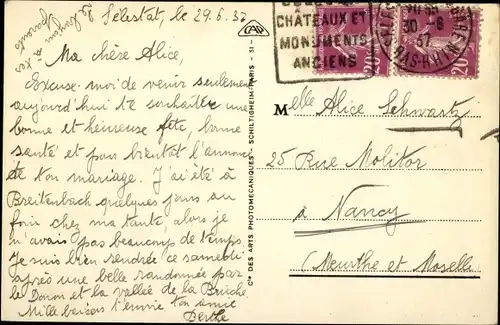 Sélestat, le 29.6.37
Ma chère Alice,
Excuse-moi de venir seulement
aujourd'hui te souhaiter une
bonne et heureuse fête, bonne
santé et pour bientôt l'annonce
de ton mariage. J'ai été à
Breitenbach quelques jours au
foin chez ma tante, alors je
n'avais pas beaucoup de temps.
Je suis bien rendrée ce samedi
après une belle randonnée par
le Donon et la vallée de la Bruche
Mille baisers t'envoie ton amie
Berthe
Cie DES ARTS PHOTOMECANIQUES - SCHILTIGHEIM-PARIS - 51 -
CAP
CHATEAUX ET
MONUMENTS
ANCIENS
30-6
37
BAS-RHIN
20c
20c
Melle Alice Schwartz
25 Rue Molitor
à Nancy
(Meurthe et Moselle)